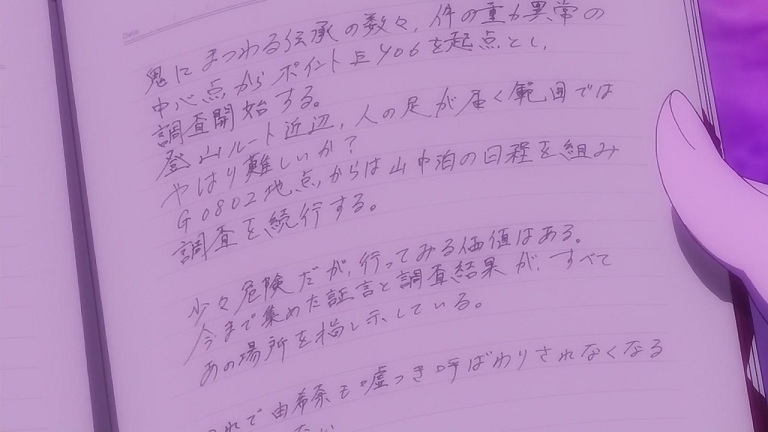 鬼にまつわる伝承の数々、件の重力異常の
中心点からポイントE406を起点とし、
調査開始する。
登山ルート近辺、人の足が届く範囲では
やはり難しいか?
G0802地点からは山中泊の日程を組み
調査を続行する。
少々危険だが、行ってみる価値はある。
今まで集めた証言と調査結果が、すべて
あの場所を指し示している。
れで由希奈も嘘つき呼ばわりされなくなる